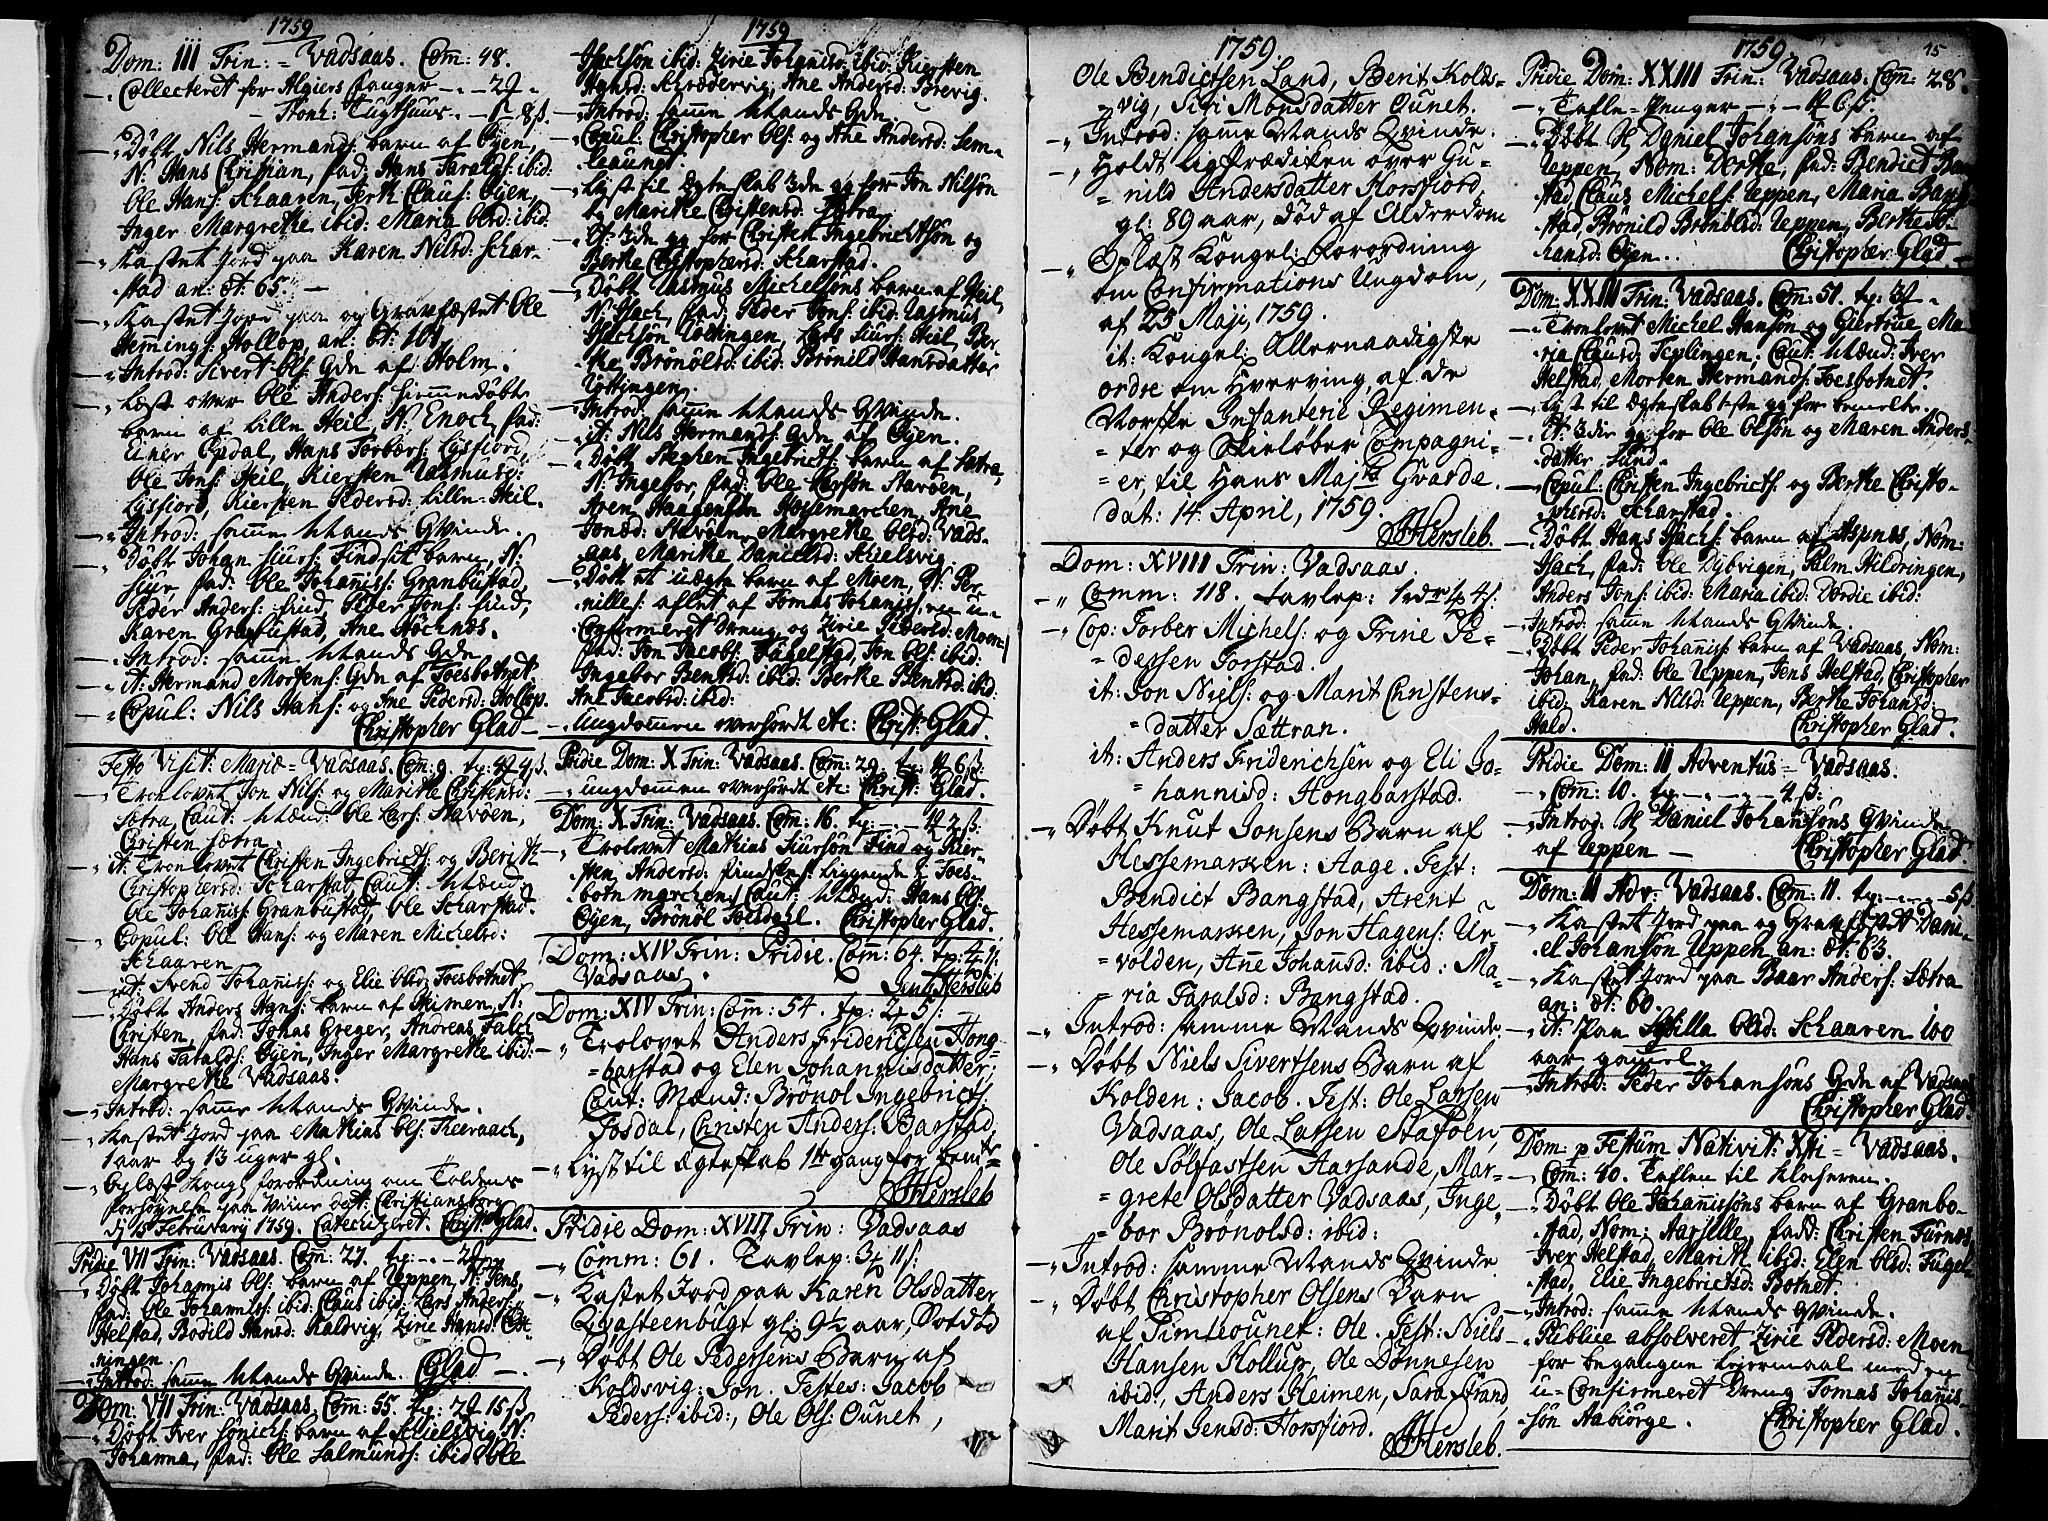 1759
Dom: III Trin: = Vadsaas. Com: 48.
Collecteret for Algiers fanger
Tugthuus
Døbt Nils Hermands: barn af Øyen,
N: Hans Christian, fad: Hans Taralds: ibid:
Ole Hans: Schaaren, Claus: Øyen,
Inger Margrethe ibid: Maria Olsd: ibid:
Kastet Jord paa Karen Nilsd: Schar-
stad an: æt: 65.
Kastet Jord paa og Gravfæstet Ole
Heming: Hollop, an: æt: 101.
Introd: Sivert Ols: Qdn af Holm.
Læst over Ole Anders: hiemmedøbte
barn af Lille Heil, N: Enoch, fad:
Opdal, Hans Torbers: Lysfiord,
Ole Jons: Heil, Kiersten Rasmusd:
Lysfiord, Kiersten Pedersd: Lille Heil.
Introd: samme Mands Qvinde.
Døbt Johan Siurs: Findset barn, N:
Siur, fad: Ole Johaniss: Granbustad,
Peder Anders: Sund, Peder Jons: Sund,
Karen Granbustad, Ane Høcknes.
Introd: samme Mands Qdn.
it: Hermand Mortens: Qdn af Toesbotnet.
Copul: Nils Hans: og Ane Pedersd: Hollop.
Christopher Glad
Festo Visit: Mariæ = Vadsaas. Com: 9.
Trolovet Jon Nils: og Marithe Christensd:
Sætra, Caut: Mænd: Ole Lars: Stavøen,
Christen Sætra.
it: Trolovet Christen Ingebricts: og Berith
Christophersd: Scharstad, Caut: Mænd:
Ole Johaniss: Granbustad, Ole Scharstad.
Copul: Ole Hans: og Maren Michelsd:
Schaaren
it: Svend Johaniss: og Elie Olsd: Toesbotnet
Døbt Anders Hans: barn af Heimen, N:
Christen, fad: Johas Greger, Andreas Falch
Hans Taralds: Øyen, Inger Margrethe ibid:
Margrethe Vadsaas.
Introd: samme Mands Qvinde.
Kastet Jord paa Mathias Ols: Teeraach,
1 aar og 13 uger gl.
Oplæst Kongl: forordning om Toldens
forhøyelse paa Viine dat: Christiansborg
d: 15 February 1759. Catechizeret. Christ: Glad.
Pridie VII Trin: Vadsaas. Com: 27.
Døbt Johannis Ols: barn af Reppen, N: Jens,
fad: Ole Johannis: ibid: Claus ibid: Lars Anders:
Helstad, Bodild Hansd: Kaldvig, Zirie Hansd:
ningen.
Introd: samme Mands Qvinde. Glad
Dom: VII Trin: Vadsaas. Com: 55.
Døbt Iver barn af Kielsvig, N:
Johanna, fad: Ole Salmunds: ibid: Ole
1759
Isachsøn ibid: Zirie Johanisd: ibid: Kiersten
Hansd: Ane Andersd: Torevig.
Introd: samme Mands Qdn.
Copul: Christopher Ols: og Ane Andersd: Sem-
leaunet.
Lyst til Ægteskab 3de gg for Jon Nilsøn
og Marithe Christensd: Sætra.
it: 3de gg for Christen Ingebrichtsøn og
Berthe Christophersd: Scharstad.
Døbt Rasmus Michelsøns barn af Heil,
N: Isach, fad: Peder Jons: ibid: Rasmus
Isachsøn Røttingen, Lars Siurs: Heil, Ber-
the Brønolsd: ibid: Brønild Hansdatter
Røttingen.
Introd: samme Mands Qvinde.
it: Nils Hermands: Qdn af Øyen.
Døbt Stephen Ingebricts: barn af Sætra,
N: Ingebor, fad: Ole Larsøn Stavøen,
Aren Haagensøn Høyemarchen, Ane
Jonsd: Stavøen, Margrethe Olsd: Vads-
aas, Marithe Danielsd: Kielsvig
Døbt et uægte barn af Moen, N: Per-
nille: aflet af Tomas Johaniss: en u-
Confirmeret Dreng og Zirie Pedersd: Moen,
fad: Jon Jacobs: Fagelstad, Jon Ols: ibid:
Ingebor Bentsd: ibid: Berthe Bentsd: ibid:
Ane Jacobsd: ibid:
Ungdommen overhørdt etc: Christ: Glad.
Pridie Dom: X Trin: Vadsaas. Com: 29.
ungdommen overhørdt etc: Christ: Glad.
Dom: X Trin: Vadsaas. Com: 16.
Trolovet Mathias Siursøn Find og Kier-
sten Andersd: Liggende i Toes-
botnmarchen, Caut: Mænd: Hans Ols:
Øyen, Brønøl Toesdahl. Christopher Glad.
Dom: XIV Trin: Pridie. Com: 64.
Vadsaas. Hersleb
Dom: XIV Trin: Com: 54.
Trolovet Anders Friderichsen Hong-
=barstad og Elen Johannisdatter;
Caut: Mænd: Brønol Ingebricts:
Tosdal, Christen Anders: Barstad,
Lyst til Ægteskab 1te gang for bemte
JHersleb
Pridie Dom: XVIII Trin: Vadsaas
Comm: 61. Tavlep:
Kastet Jord paa Karen Olsdatter
Qvasteenbugt gl: 9½ aar,
Døbt Ole Pedersens Barn af
Koldsvig: Jon. Testes: Jacob
Peders: ibid:, Ole Ols: Ounet,
1759.
Ole Bendictsen Land, Berit Kolds-
=vig, Siri Monsdatter Ounet.
Introd: samme Mands Qvinde.
Holdt Ligprædiken over Gu-
=nild Andersdatter Horsfiord,
gl: 89 aar, død af Alderdom
Oplæst Kongel: Forordning
om Confirmations Ungdom,
af 25 Maji, 1759.
it: Kongel: Allernaadigste
ordre om Hverving, af de
Norske Infanterie Regimen-
=ter og Skieløber Compagni-
=er, til Hans Majts Gvarde.
dat: 14 April, 1759.
JHersleb.
Dom: XVIII Trin: Vadsaas.
Comm: 118. Tavlep:
Cop: Torber Michels: og Trine Pe-
=dersen Torstad.
it: Jon Niels: og Marit Christens-
=datter Sættran.
it: Anders Friderichsen og Eli Jo-
=hannisd: Hongbarstad.
Døbt Knut Jonsens Barn af
Hessemarken: Aage. Test:
Bendict Bangstad, Arent
Hessemarken, Jon Hagens: Ur-
=volden, Ane Johansd: ibid: Ma-
=ria Taralsd: Bangstad.
Introd: samme Mands Qvinde
Døbt Niels Sivertsens Barn af
Kolden: Jacob. Test: Ole Larsen
Vadsaas, Ole Larsen Staføen,
Ole Solfastsen Aarsande, Mar-
=grete Olsdatter Vadsaas, Inge-
=bor Brønolsd: ibid:
Introd: samme Mands Qvinde
Døbt Christopher Olsens Barn
af Simleounet: Ole. Test: Niels
Hansen Hollup, Ole Dønnesen
ibid:, Anders Heimen, Sara Strand,
Marit Jensd: Horsfiord.
JHersleb.
1759. 15
Pridie Dom: XXIII Trin: Vadsaas. Com: 28.
Tafle-Penger
Døbt Daniel Johansøns barn af
Reppen, Nom: Dorthe, fad: Bendict Bang-
stad, Claus Michels: Reppen, Maria Bang-
stad, Brønild Brønolsd: Reppen, Berthe Jo-
hansd: Øyen. Christopher Glad.
Dom: XXIII Trin: Vadsaas. Com: 51.
Trolovet Michel Hansøn og Giertrue Ma-
ria Clausd: Teplingen; Caut: Mænd: Iver
Helstad, Morten Hermands: Toesbotnet.
Lyst til Ægteskab 1ste gg for bemelte.
it: 3die gg for Ole Olsøn og Maren Anders-
datter Sund.
Copul: Christen Ingebricts: og Berthe Christo-
phersd: Scharstad.
Døbt Hans Isachs: barn af Aspnes, Nom:
Isach, fad: Ole Dybvigen, Palm Hildringen,
Anders Jons: ibid: Maria ibid: Dordie ibid:
Introd: samme Mands Qvinde.
Døbt Peder Johaniss: barn af Vadsaas, Nom:
Johan, fad: Ole Reppen, Jens Helstad, Christopher
ibid: Karen Nilsd: Reppen, Berthe Johansd:
Hald. Christopher Glad.
Pridie Dom: II Adventus = Vadsaas.
Com: 10.
Introd: Daniel Johansøns Qvinde
af Reppen — Christopher Glad.
Dom: II Adv: Vadsaas. Com: 11.
Kastet Jord paa og Gravfæstet Dani-
el Johansøn Reppen an: æt: 63.
Kastet Jord paa Baar Anders: Sætra
an: æt: 60.
it: paa Sybilla Olsd: Schaaren 100
aar gamel.
Introd: Peder Johansøns Qdn af Vadsaas
Christopher Glad
Dom: p Festum Nativit: Xsti = Vadsaas.
Com: 40. Taflen til Klocheren.
Døbt Ole Johanissøns barn af Granbo-
stad, Nom: Aarsille, fadd: Christen Turnes,
Iver Helstad, Marithe ibid: Elen Olsd: Fugel-
stad, Elie Ingebrictsd: Botnet.
Introd: samme Mands Qvinde.
Publice absolveret Zirie Pedersd: Moen
for begangne Leiermaal med en
u-Confirmeret Dreng Tomas Johanis-
søn Aabiørge. Christopher Glad.